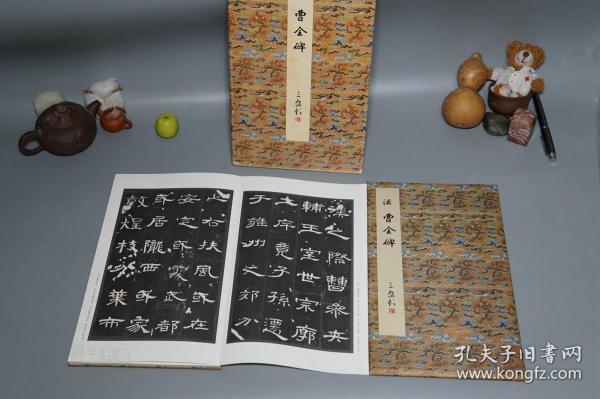 曹全碑
漢 曹全碑
漢之際曹參夾
輔王室世宗廓
土斥竟子孫遷
于雍州之郊分
止右扶風或在
安定或處武都
或居隴西或家
敦煌枝分葉布
孔夫子旧书网
www.kongfz.com